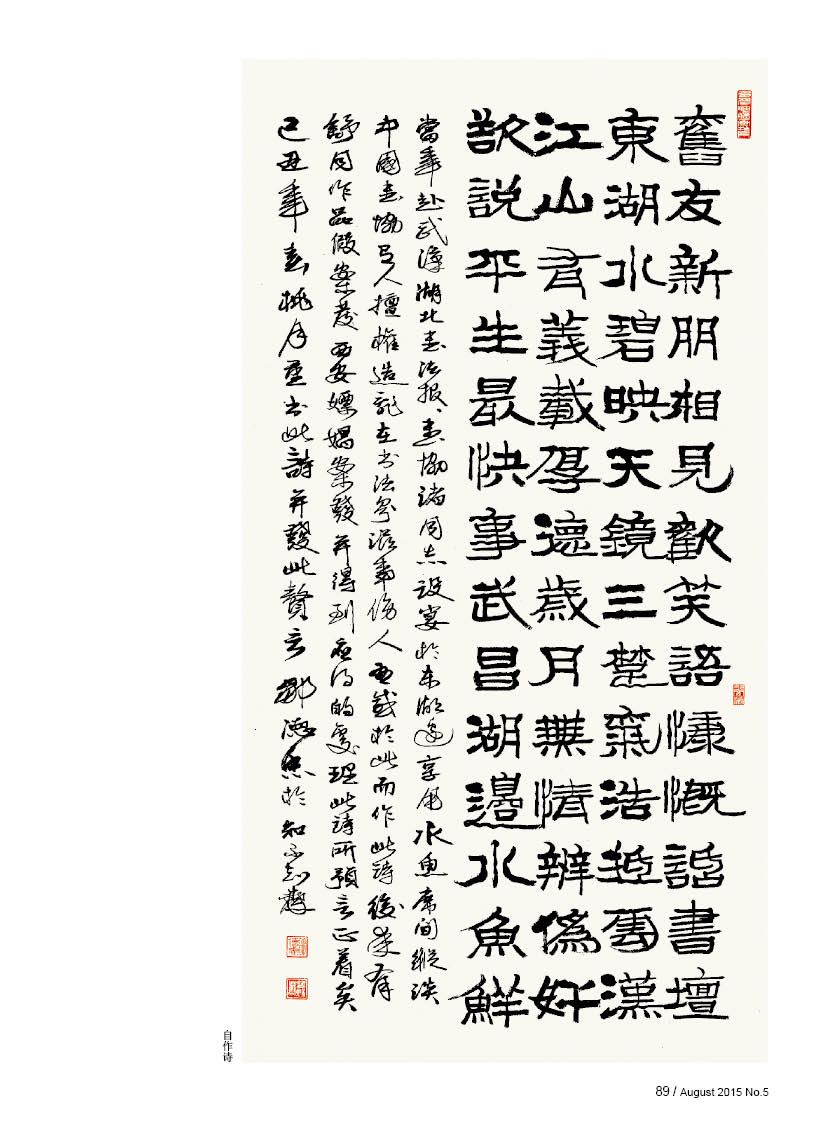 舊友新朋相見歡笑語慷慨話書壇
東湖水碧映天鏡三楚氣浩抵雲漢
江山有義載厚德歲月無情辨偽奸
欲説平生最快事武昌湖邊水魚鮮
當年赴武漢湖北書法報、書協諸同志設宴於东湖邊享用水魚席间縱談
中國書協有人擅權造訛在书法界滋事傷人有感於此而作此詩後果有
舒同作品假案及西安嫖娼案發并得到应得的處理此詩所預言正着矣
己丑年春桃月重书此詩并發此贅言 鄒德忠於知不知齋
自作诗
89 / August 2015 No.5